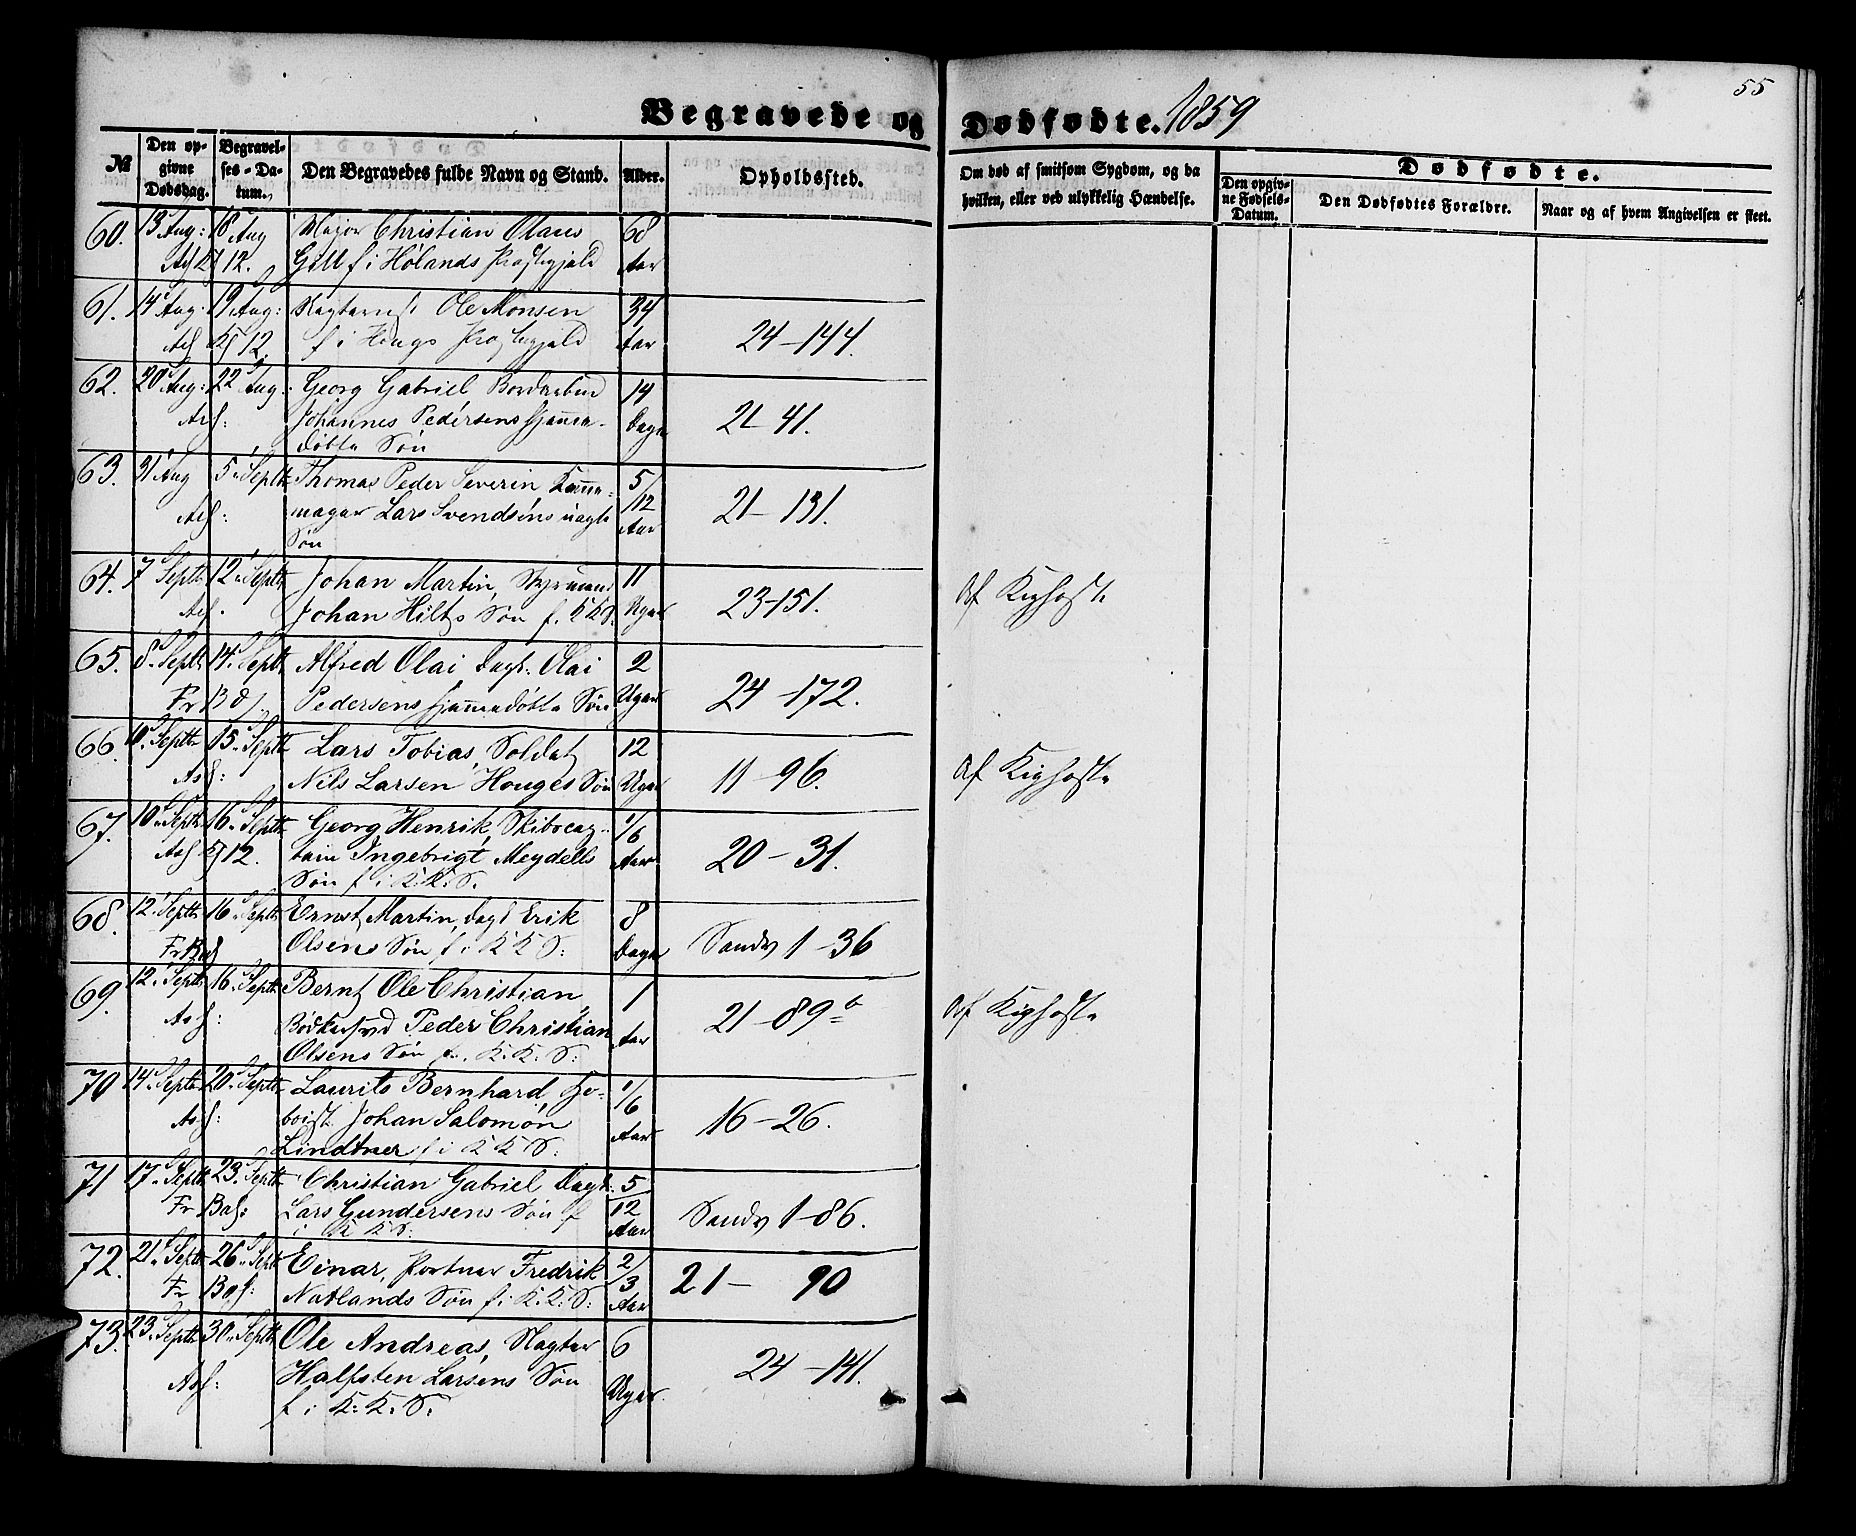 55
Begravede og Dødfødte. 1859
№
Den opgivne Dødsdag.
Begravelses-Datum.
Den Begravedes fulde Navn og Stand.
Alder.
Opholdssted.
Om død af smitsom Sygdom, og da hvilken, eller ved ulykkelig Hændelse.
Dødfødte.
Den opgivne Fødsels-Datum.
Den Dødfødtes Forældre.
Naar og af hvem Angivelsen er skeet.
60. 13 Aug: 18 Aug Major Christian Olaus 68
12. Gill f i Hølands Præstegjeld Aar
61. 14 Aug. 19 Aug: Ole Monsen 34
12. f i Hougs Præstegjeld Aar 24-144.
62. 20 Aug: 22 Aug: Georg Gabriel 14
Johannes Pedersens hjemme- Dage 21-41.
døbte Søn
63. 31 Aug 5 Septbr Thomas Peder Severin 5/12
mager Lars Svendsens uægte Aar 21-131.
Søn
64. 7 Septbr 12 Septbr Johan Martin, Styrmand 11
Johan Hilts Søn f. K.K.S. Uger 23-151. af Kighoste
65. 8 Septbr 14 Septbr Alfred Olai Dagl. Olai 2
Pedersens hjemmedøbte Søn Uger 24-172.
66. 10 Septbr 15 Septbr Lars Tobias, Soldat 12
Nils Larsen Houges Søn Uger 11-96. af Kighoste
67. 10 Septbr 16 Septbr Georg Henrik, Skibscap- 1/6
12. tain Ingebrigt Meydells Aar 20-31.
Søn f i K.K.S.
68. 12 Septbr 16 Septbr Ernst Martin, Dagl Erik 8
Olsens Søn f i K K S: Dage Sandv 1-36
69. 12 Septbr 16 Septbr Bernt Ole Christian, 1
Bødkersvd Peder Christian Aar 21-89 b af Kighoste
Olsens Søn f. i K. K: S:
70 14 Septbr 20 Septbr Laurits Bernhard, Ho- 1/6
boist Johan Salomon Aar 16-26.
Lindtner f i K K S:
71 17 Septbr 23 Septbr Christian Gabriel Dagl. 5/12
Lars Gundersens Søn f Aar Sandv 1-86.
i K K S:
72. 21 Septbr 26 Septbr Einar, Portner Fredrik 2/3
Natlands Søn f i K.K:S: Aar 21-90
73. 23 Septbr 30 Septbr Ole Andreas, Slagter 6
Halfsten Larsens Søn Uger. 24-141.
f i K: K: S: